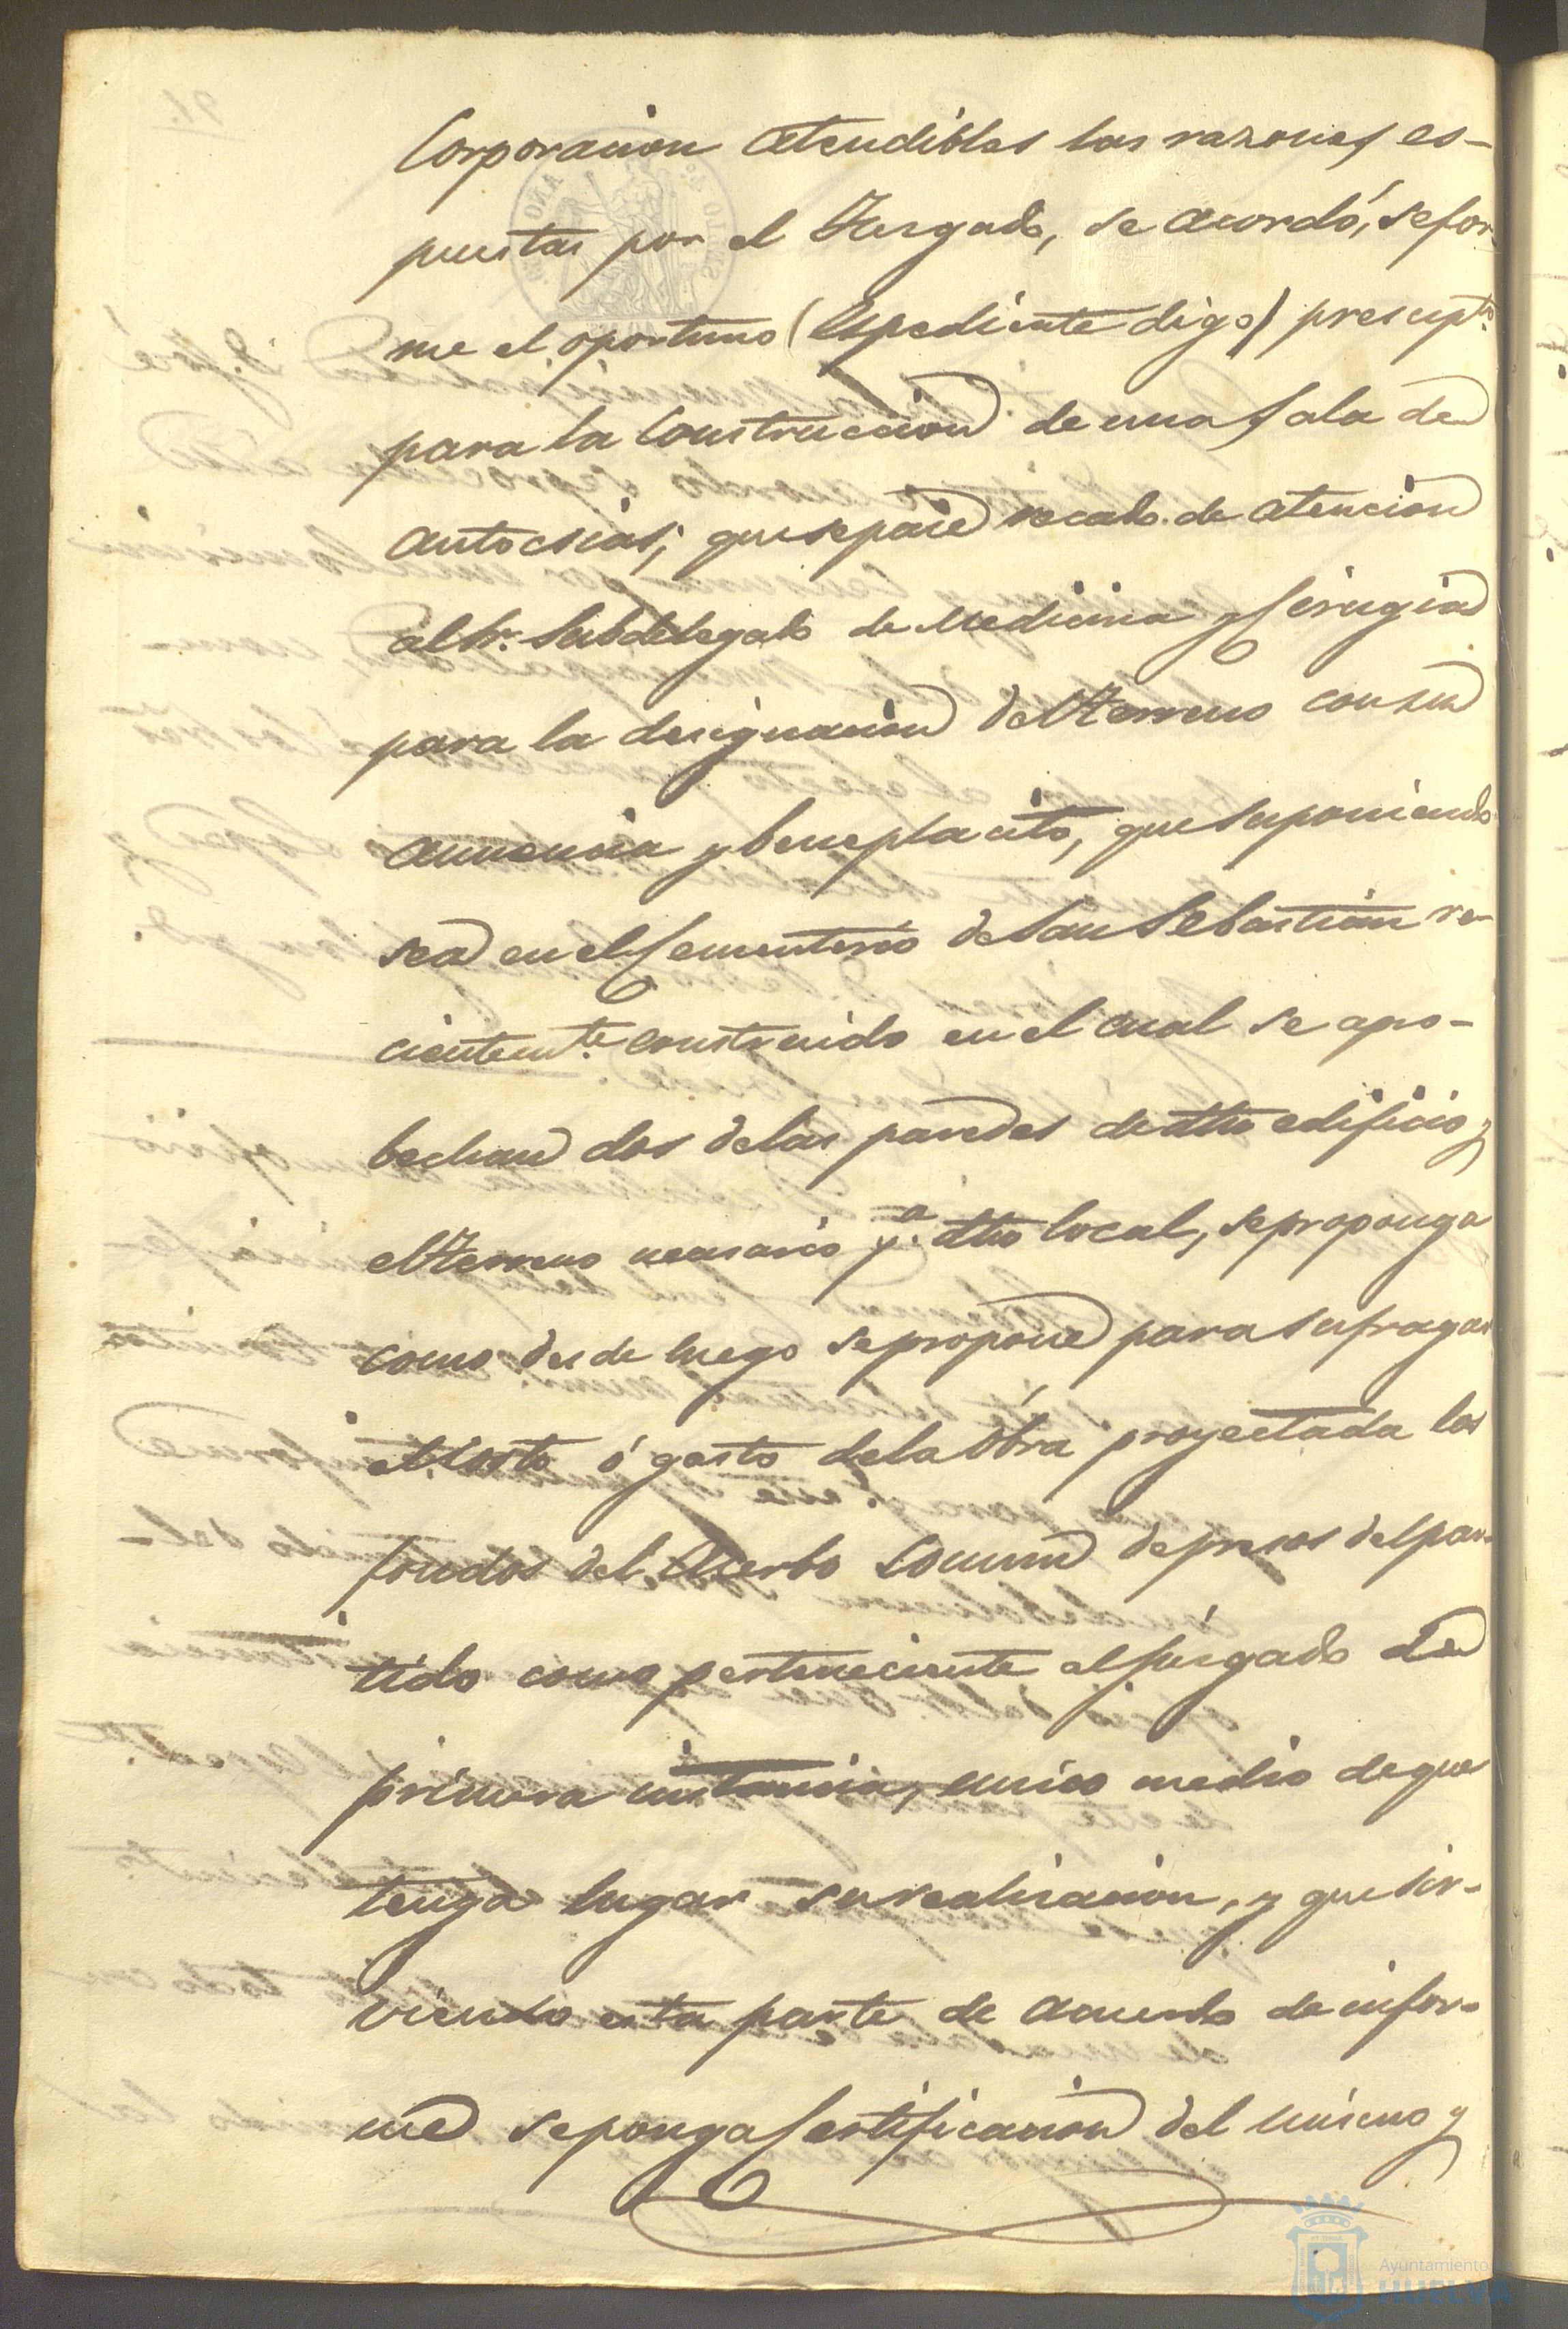 Corporacion atendibles las razones es-
puestas por el Jusgado, se acordó, se for-
me el oportuno (Espediente digo) presupto.
para la Construccion de una Sala de
autocsias; que se pase recado de atencion
al Sr. Subdelegado de Medicina y Cirugia
para la designacion del terreno con su
anuencia y beneplacito, que suponiendo
sea en el Cementerio de San Sebastian re-
cientemte. construido en el cual se apro-
bechan dos de las paredes de dho edificio y
el terreno necesario pa. dho local, se proponga
como desde luego se propone para sufragar
el Costo ó gasto de la Obra proyectada los
fondos del acerbo Comun de presos del par-
tido como perteneciente al Jusgado de
primera instancia, unico medio de que
tenga lugar su realisacion, y que sir-
viendo esta parte de acuerdo de infor-
me se ponga Certificacion del mismo y
Ayuntamiento de
HUELVA